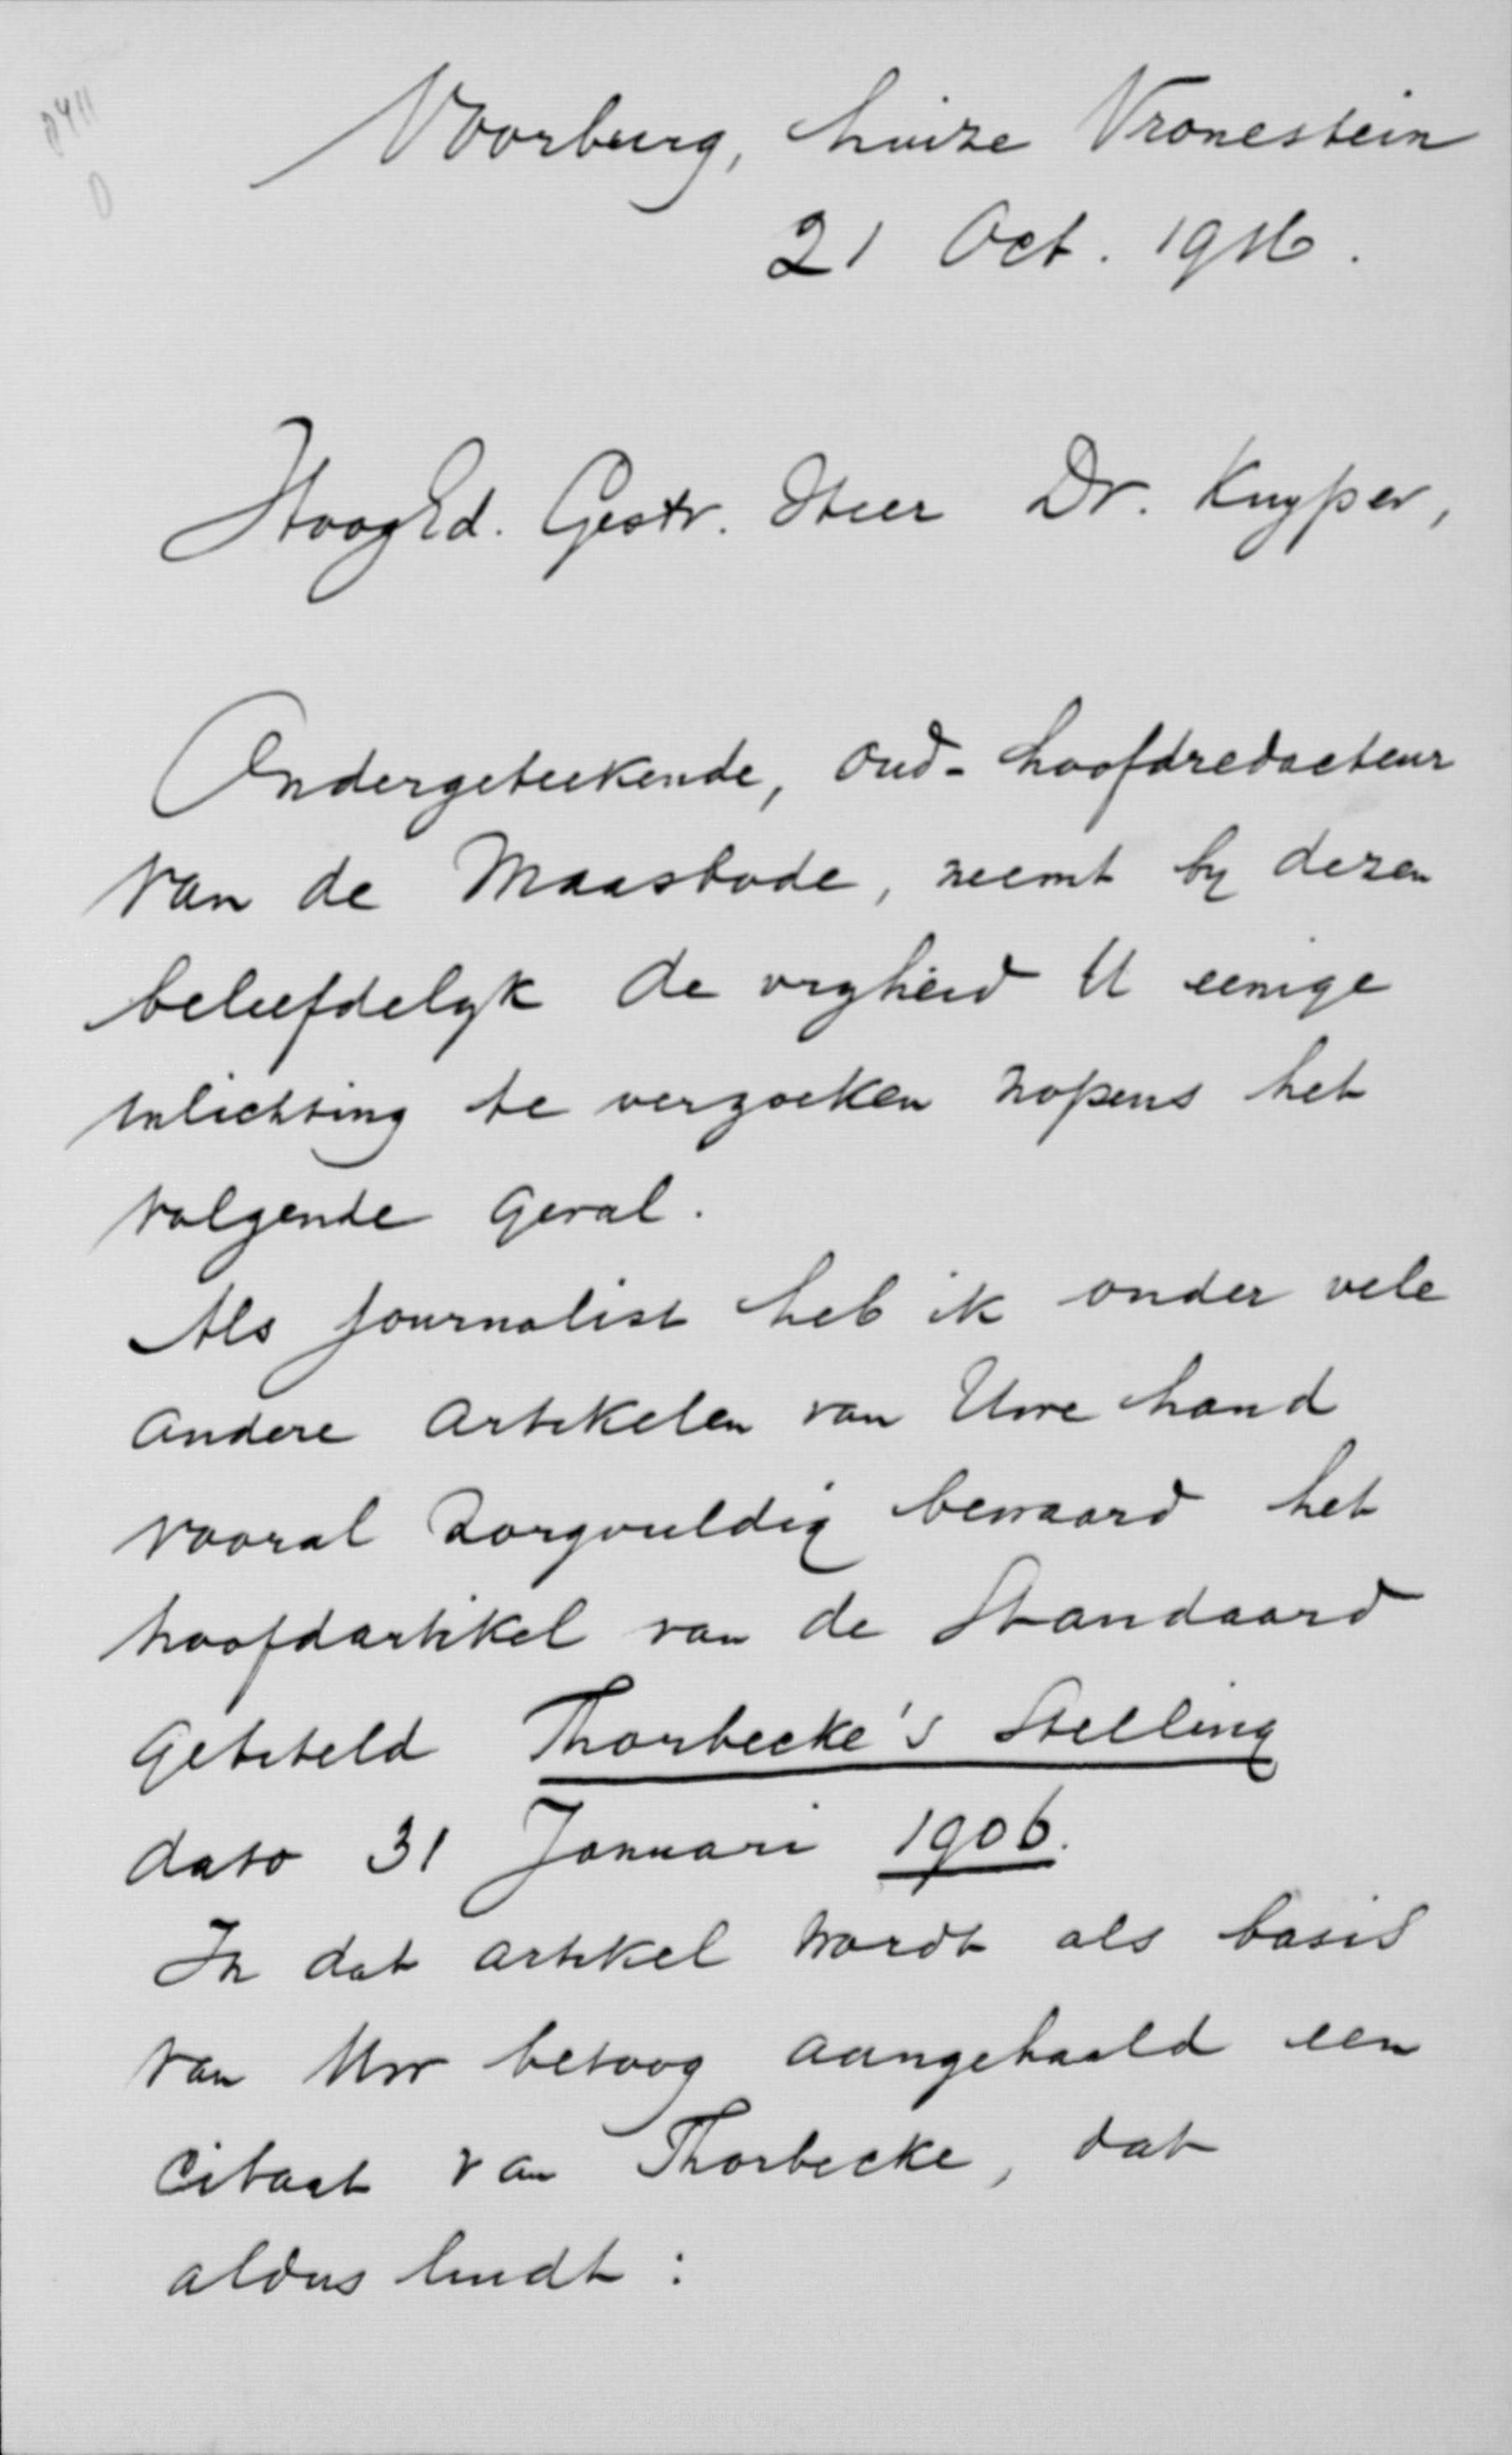 Voorburg, huize Vronestein
21 Oct. 1916.
HoogEd. Gestr. Heer Dr. Kuyper,
Ondergeteekende, oud-hoofdredacteur
van de Maasbode, neemt by dezen
beleefdelyk de vryheid U eenige
inlichting te verzoeken nopens het
volgende geval.
Als journalist heb ik onder vele
andere artikelen van Uwe hand
vooral zorgvuldig bewaard het
hoofdartikel van de Standaard
getiteld Thorbecke's Stelling
dato 31 Januari 1906.
In dat artikel wordt als basis
van Uw betoog aangehaald een
citaat van Thorbecke, dat
aldus luidt: